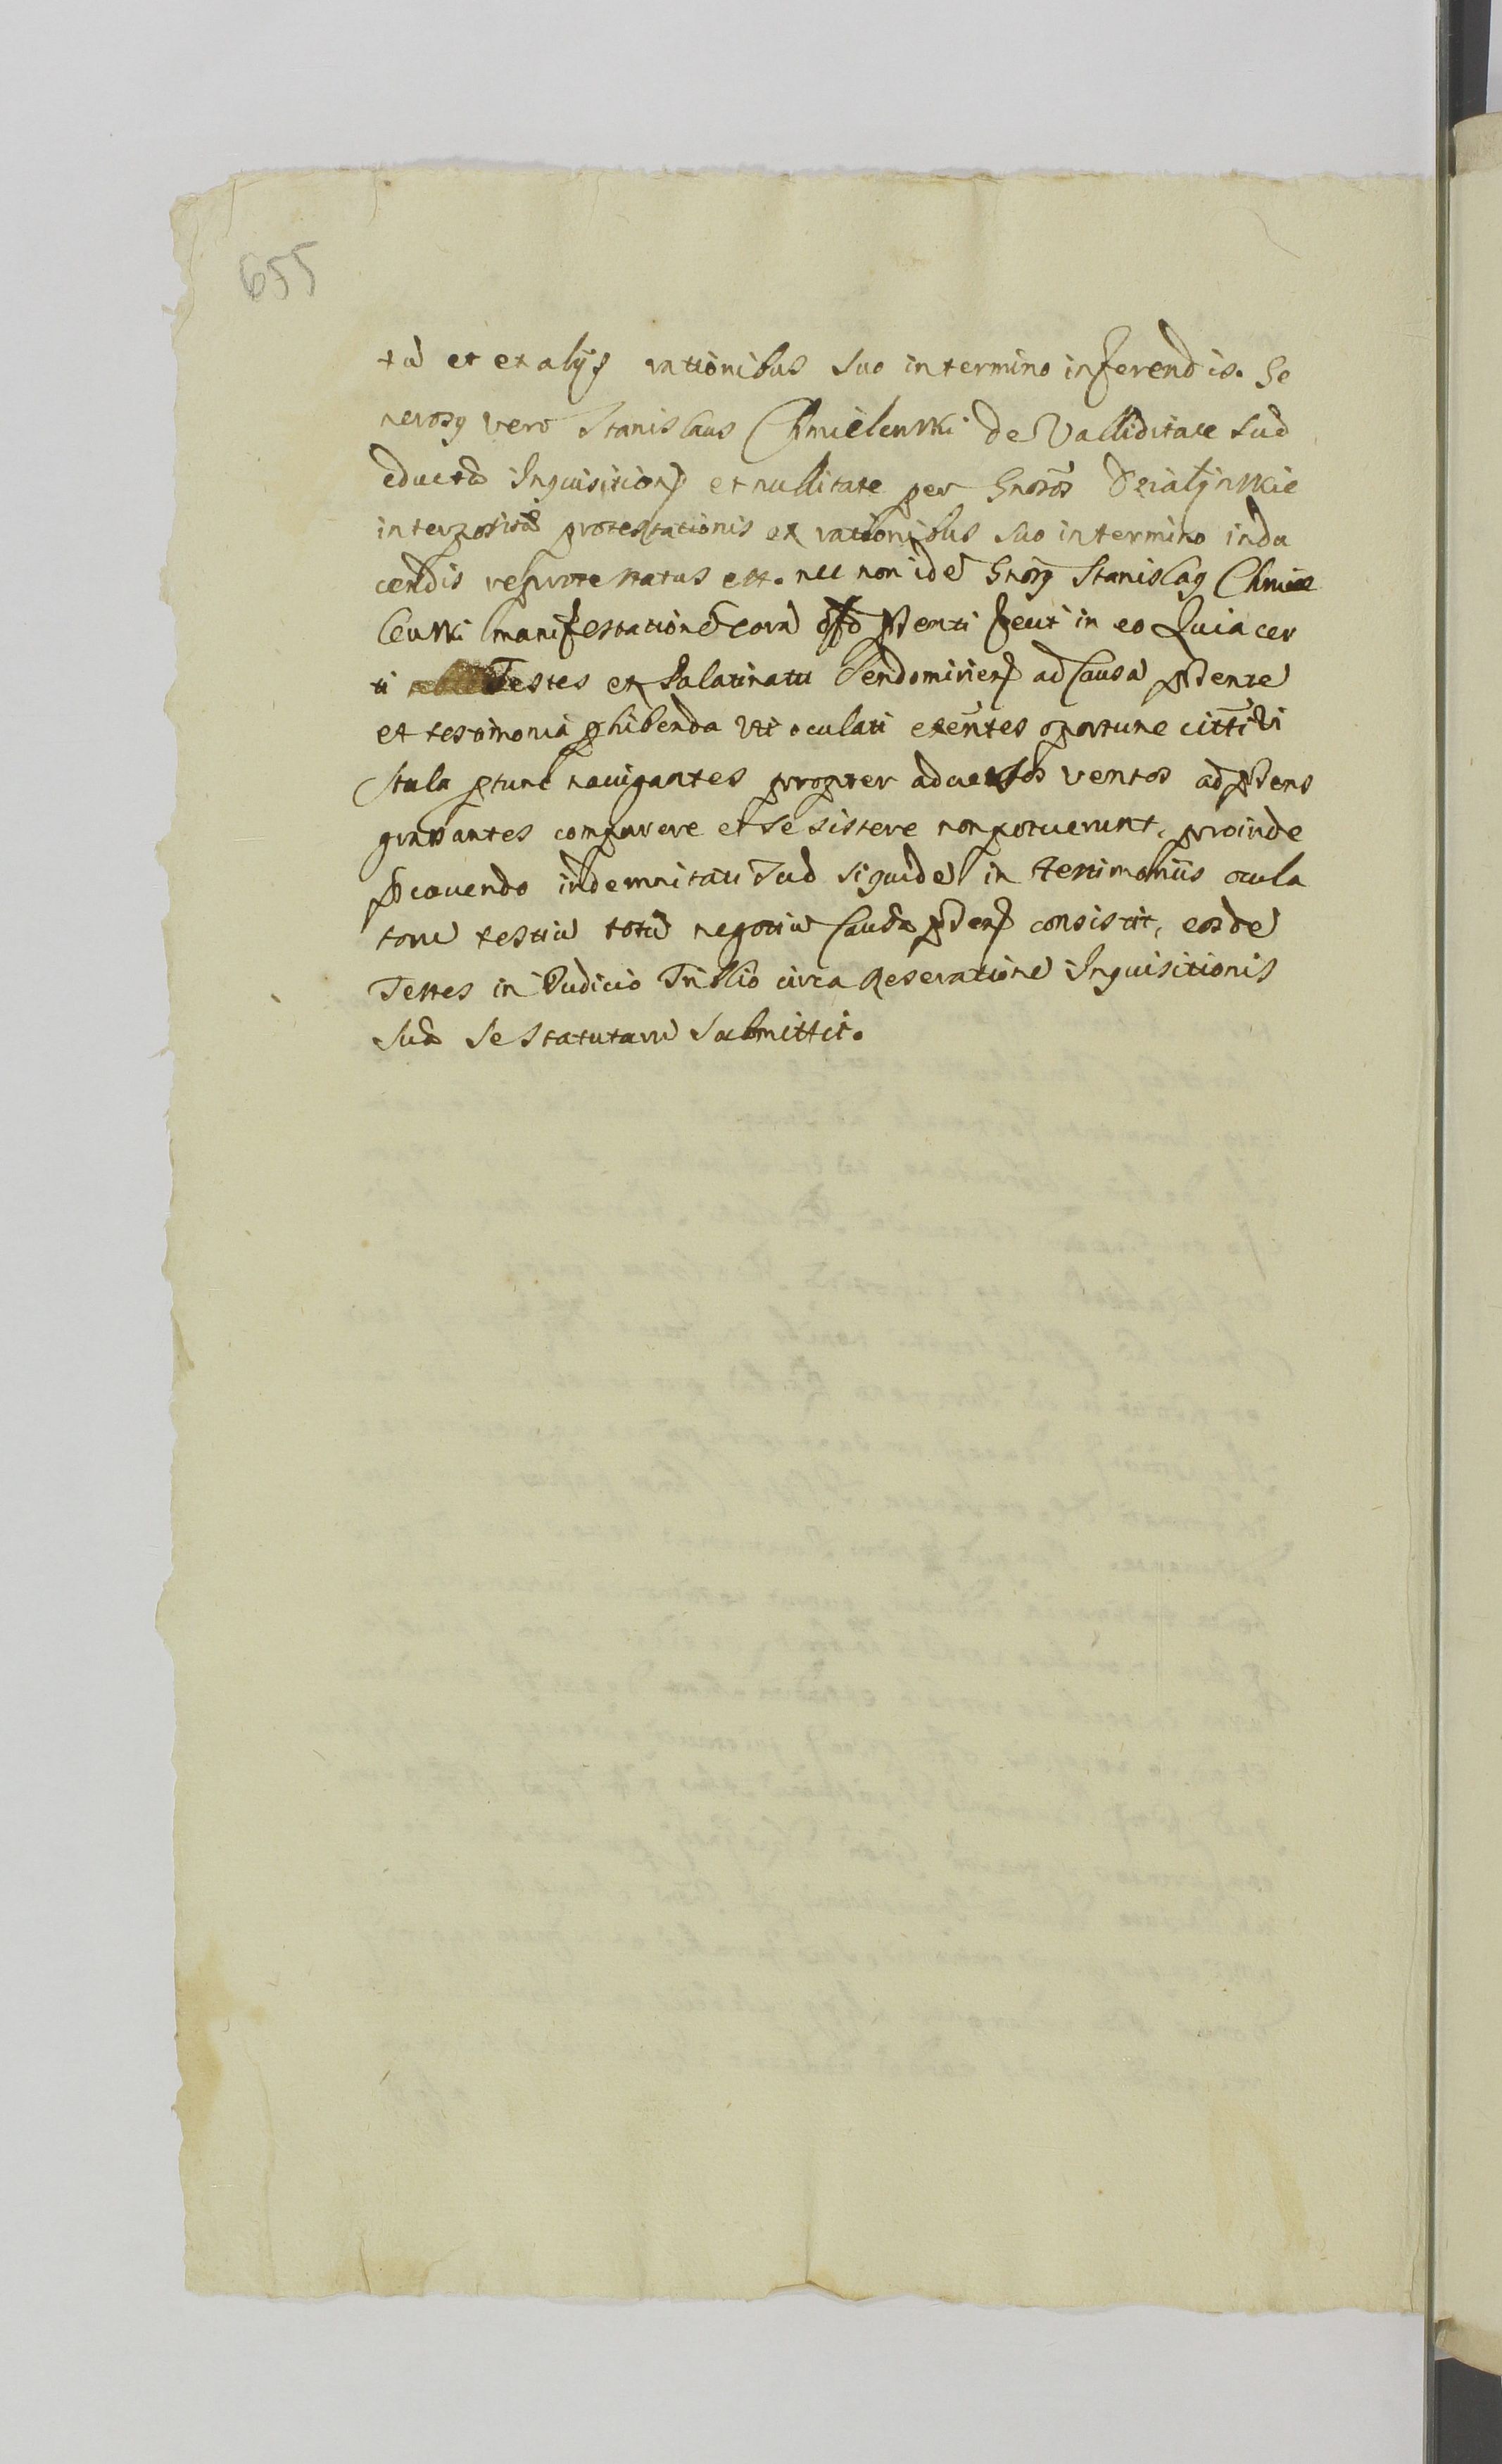 655
tã et ex alijs rationibus suo in termino inferendis. Ge
nerosq vero Stanislaus Chmielewski de Valliditate suæ
eductæ Inquisitionis et nullitate per Gnosos Działijnskie
interpositæ protestationis ex rationibus suo in termino indu
cendis reprotestatus est. nec non idẽ Gnosq Stanislaq Chmie
lewski manifestationẽ corã offo pñenti fecit in eo Quia cer
ti Testes ex Palatinatu Sendomirien ad Causã pñentẽ
et testimonia phibenda uti oculati exeñtes oportune citti Vi
stula ptunc nauigantes propter aduersos ventos ad pñens
grassantes comparere et se sistere non potuerunt, proinde
præcauendo indemnitati suæ siquidẽ in testimoniis ocula
torũ testiũ totũ negotiũ Causæ pñentis consistit, eosdẽ
Testes in Iudicio Tribllio circa Reserationẽ Inquisitionis
suæ se statuturũ submittit.